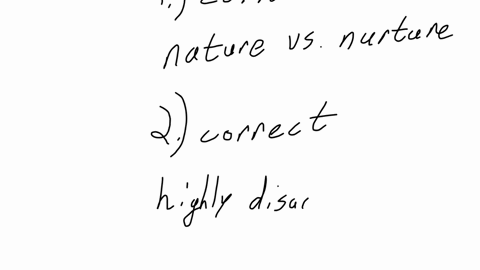 nature vs. nurture
2.) correct
highly